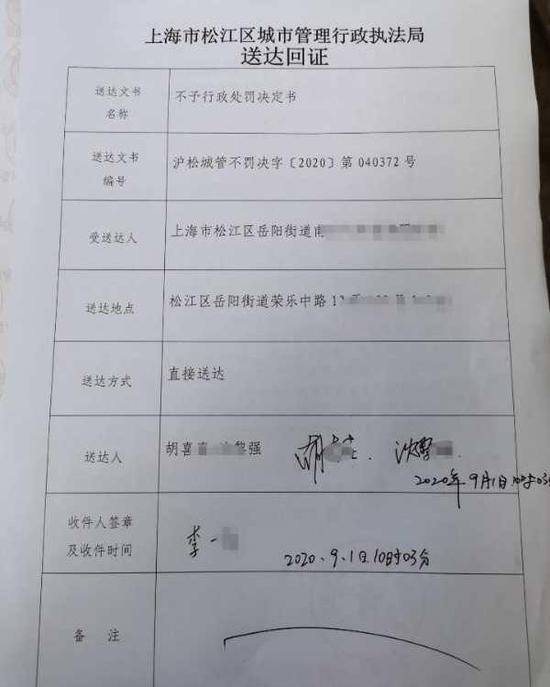 上海市松江区城市管理行政执法局
送达回证
送达文书
名称
不予行政处罚决定书
送达文书
编号
沪松城管不罚决字〔2020〕第 040372 号
受送达人
上海市松江区岳阳街道南
送达地点
松江区岳阳街道荣乐中路 1
送达方式
直接送达
送达人
胡喜 黎强
胡 沈
2020年9月1日10时03分
收件人签章
及收件时间
李一
2020、9、1日10时03分
备 注